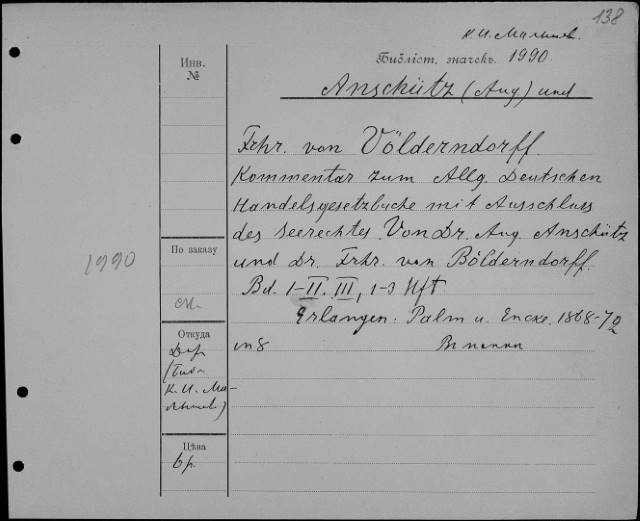 138
К. И. Малышев.
Библіот. значекъ. 1990.
Anschütz (Aug) und
Инв.
№
Frhr. von Völderndorff.
Kommentar zum Allg. Deutschen
Handelsgesetzbuche mit Ausschluss
des Seerechtes. Von Dr. Aug. Anschütz
und Dr. Frhr. von Bölderndorff.
Bd. I-II. III, 1-3 Hft
Erlangen. Palm u. Encke. 1868-72
in 8
1990
По заказу
Откуда
Дар
(Биб-
К. И. Ма-
лышева)
Цѣна
6 р